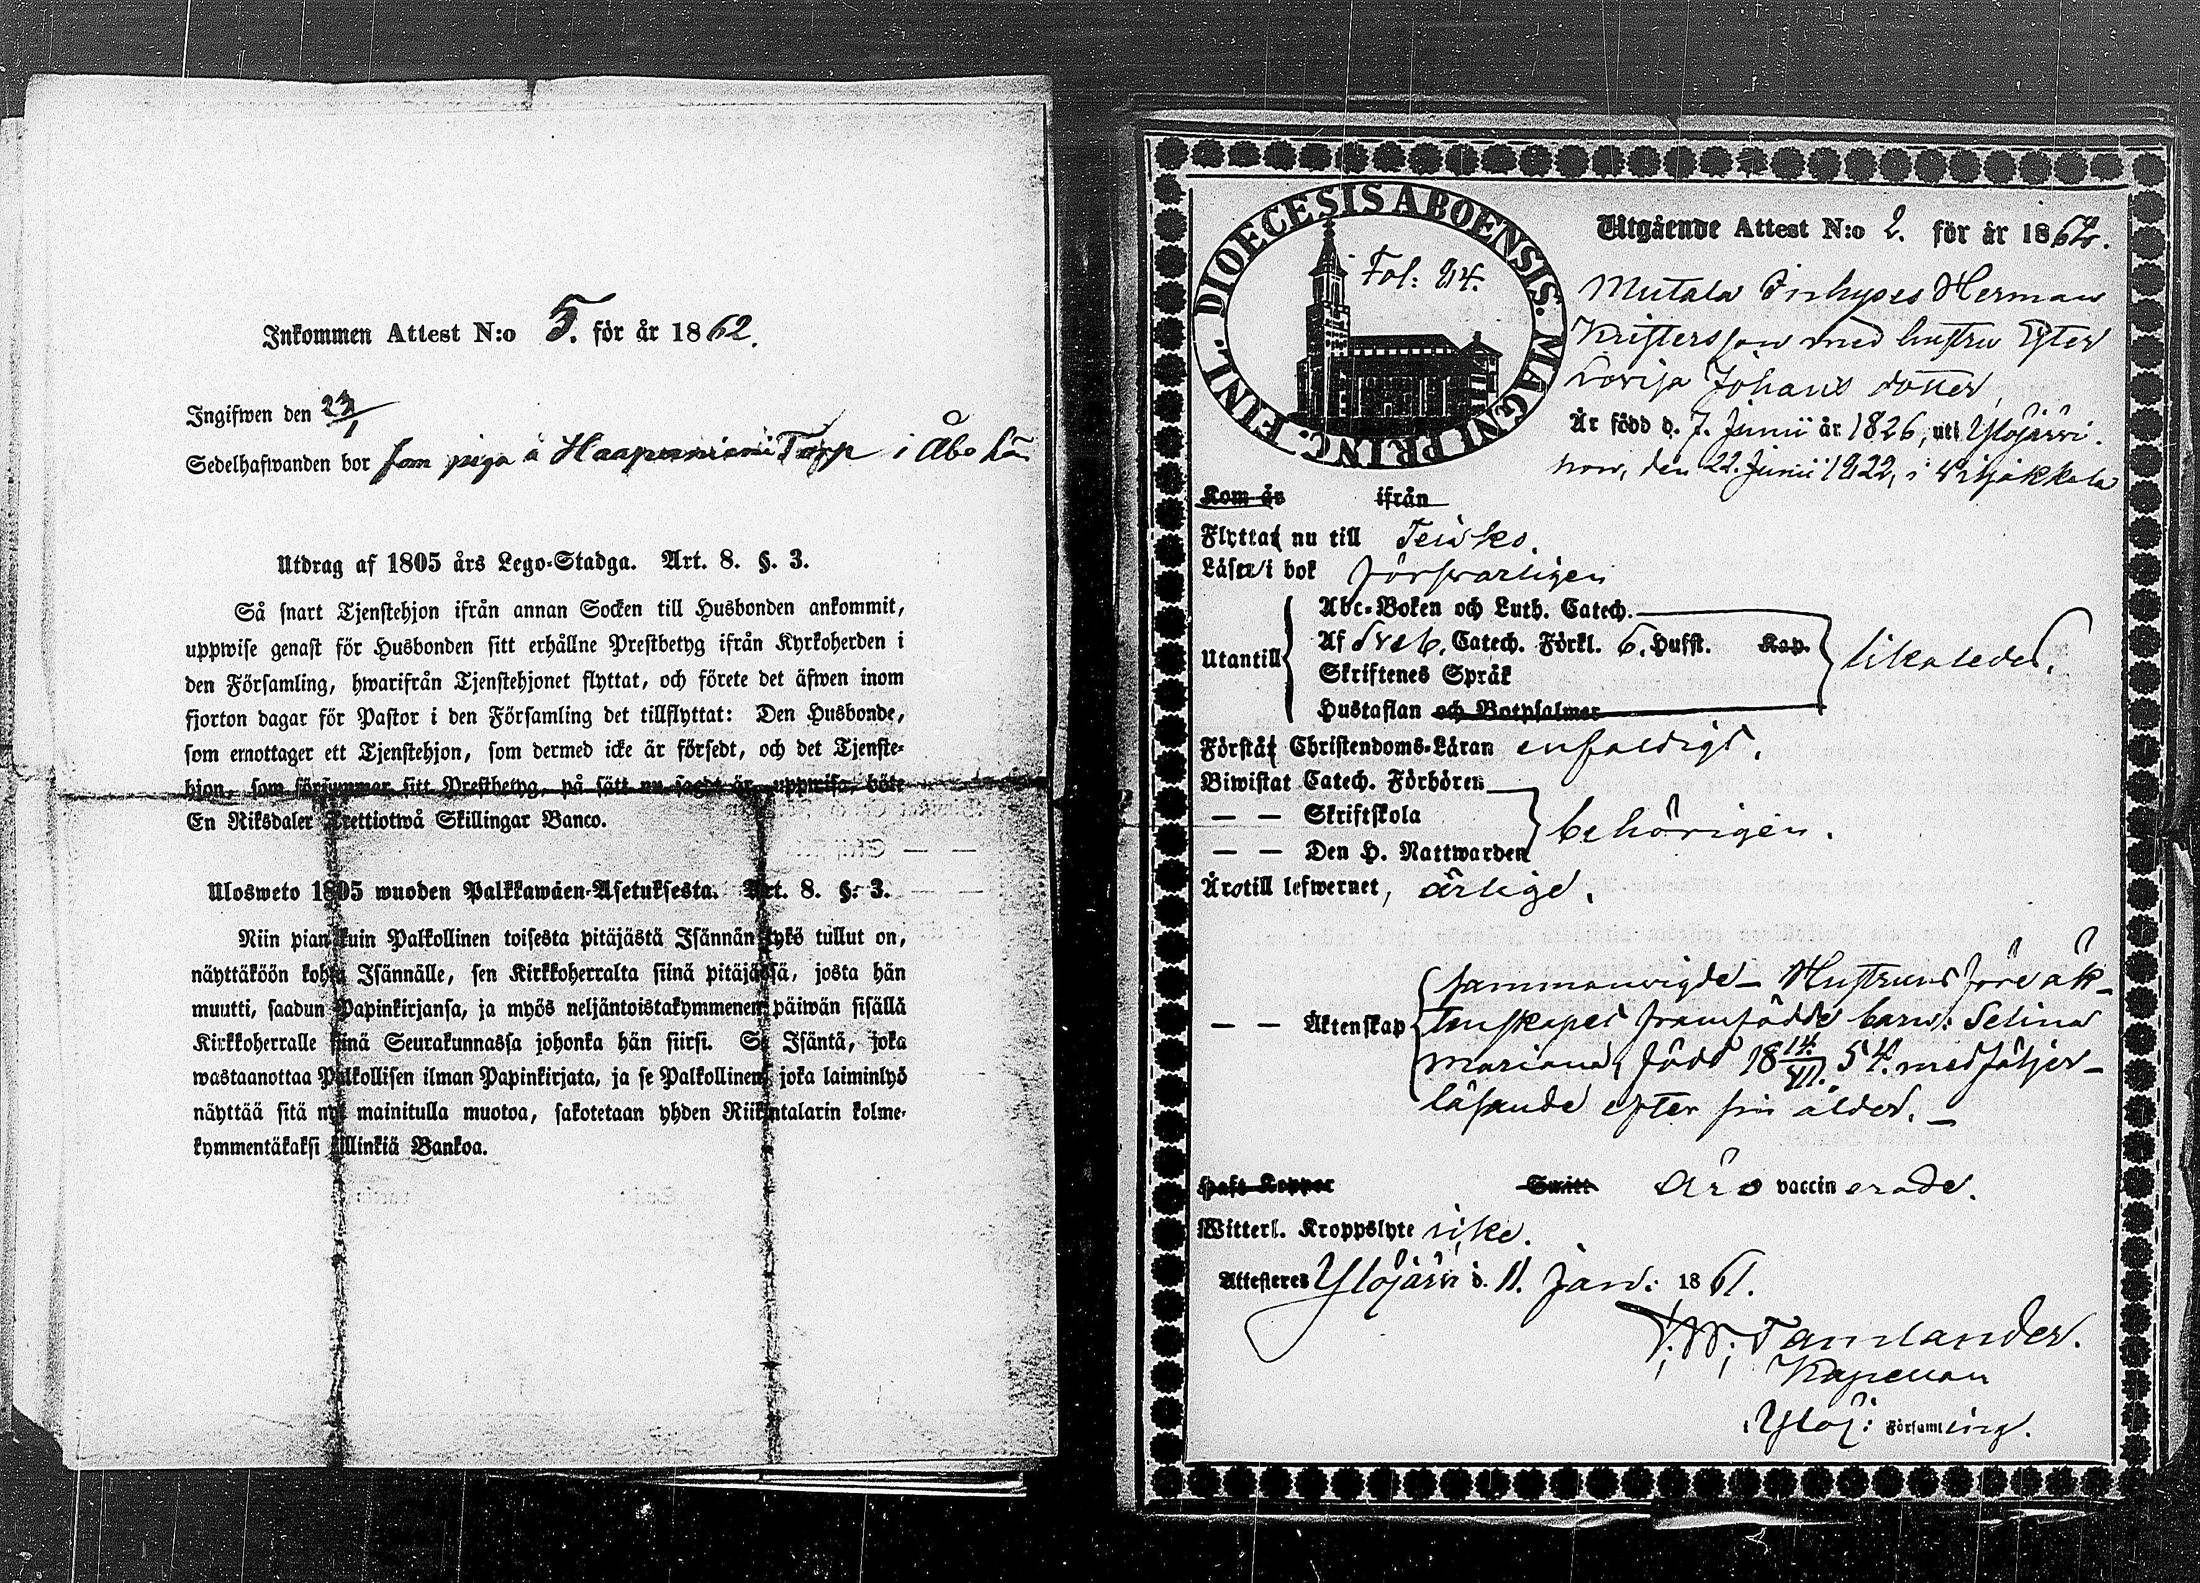 Inkommen Attest N:o 5. för år 1862.
Ingifwen den 23/1
Sedelhafwanden bor som piga å Haapaniemi Torp i Åbo Län
Utdrag af 1805 års Lego-Stadga. Art. 8. §. 3.
Så snart Tjenstehjon ifrån annan Socken till Husbonden ankommit,
uppwise genast för Husbonden sitt erhållne Prestbetyg ifrån Kyrkoherden i
den Församling, hwarifrån Tjenstehjonet flyttat, och förete det äfwen inom
fjorton dagar för Pastor i den Församling det tillflyttat: Den Husbonde,
som emottager ett Tjenstehjon, som dermed icke är försedt, och det Tjenste-
hjon, som försummar sitt Prestbetyg, på sätt nu sagdt är, uppwisa, böte
En Riksdaler Trettiotwå Skillingar Banco.
Ulosweto 1805 wuoden Palkkawäen-Asetuksesta. Art. 8. §. 3.
Niin pian kuin Palkollinen toisesta pitäjästä Isännän tykö tullut on,
näyttäköön kohta Isännälle, sen Kirkkoherralta siinä pitäjässä, josta hän
muutti, saadun Papinkirjansa, ja myös neljäntoistakymmenen päiwän sisällä
Kirkkoherralle siinä Seurakunnassa johonka hän siirsi. Se Isäntä, joka
wastaanottaa Palkollisen ilman Papinkirjata, ja se Palkollinen, joka laiminlyö
näyttää sitä nyt mainitulla muotoa, sakotetaan yhden Riikintalarin kolme-
kymmentäkaksi killinkiä Bankoa.
DIOECESIS ABOENSIS. MAGNI PRINC. FINL.
Fol: 214.
Utgående Attest N:o 2. för år 1862.
Mutala Inhyses Herman
Kristersson med hustru Ester
Lovisa Johans dotter,
Är född d. 7. Junii år 1826, uti Ylöjärvi.
hon, den 22. Junii 1822, i Viljakkala
Kom år ifrån
Flyttat nu till Teisko.
Läser i bok försvarligen
Utantill Abc-Boken och Luth. Catech.
Af Sveb. Catech. Förkl. 6. Hufst. Kap.
Skriftenes Språk
Hustaflan och Botpsalmer
likaledes.
Förstår Christendoms-Läran enfaldigt.
Biwistat Catech. Förhören
— — Skriftskola
— — Den H. Nattwarden
behörigen.
Äro till lefwernet, ärlige.
— — Äktenskap sammanvigde – Hustruns före äk-
tenskapet framfödde barn: Selina
Mariana, född 18 14/VII. 54. medföljer –
läsande efter sin ålder. –
Haft Koppor Smitt Äro vaccinerade.
Witterl. Kroppslyte icke.
Attesteres Ylöjärvi d. 11. Jan: 1861.
Tamlander.
Kapellan
i Ylöj: Församling.